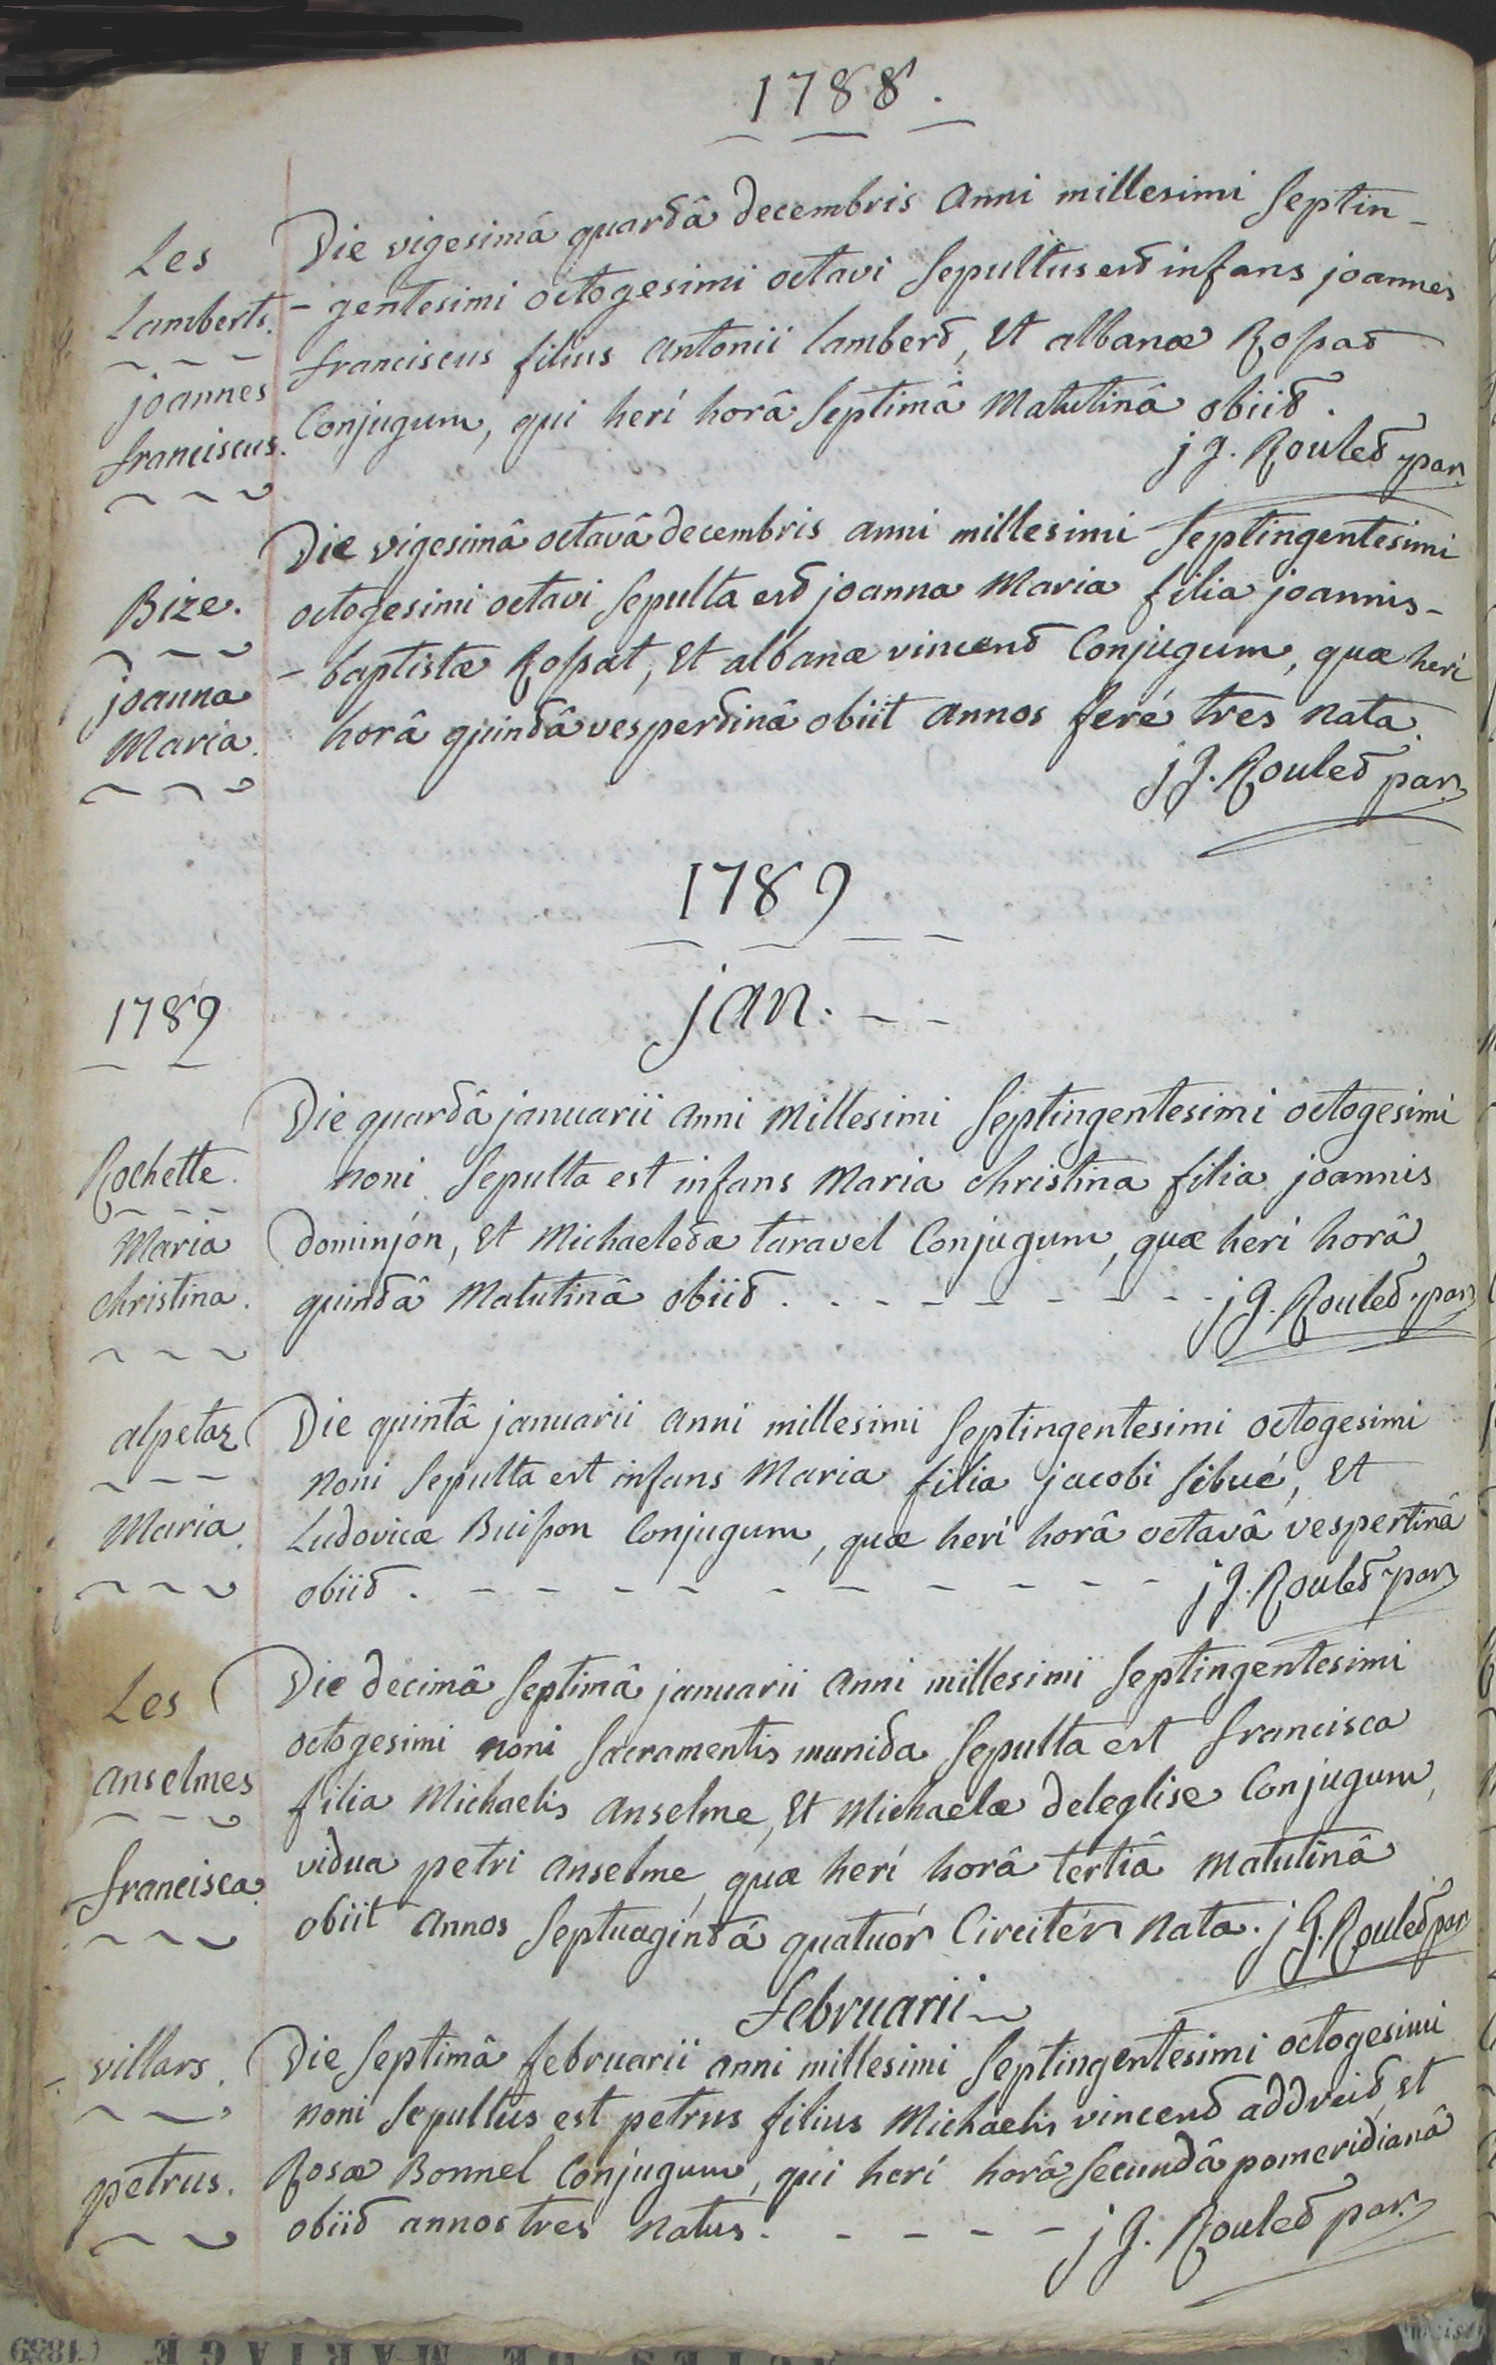 1788.
Les
Lamberts.
joannes
franciscus.
Die vigesimâ quartâ decembris anni millesimi septin-
-gentesimi octogesimi octavi sepultus est infans joannes
franciscus filius antonii lambert, Et albanæ Rossat
Conjugum, qui heri horâ septimâ matutinâ obiit.
j g. Roulet par.
Bize.
joanna
Maria.
Die vigesimâ octavâ decembris anni millesimi septingentesimi
octogesimi octavi sepulta est joanna Maria filia joannis-
-baptistæ Rossat, Et albanæ vincent Conjugum, quæ heri
horâ quintâ vespertinâ obiit annos feré tres nata.
j g. Roulet par.
1789
jan.
1789
Rochette.
Maria
christina.
Die quartâ januarii anni Millesimi septingentesimi octogesimi
noni sepulta est infans Maria christina filia joannis
dominjón, Et Michaeletæ taravel Conjugum, quæ heri horâ
quintâ Matutinâ obiit. - - - - - - - - j g. Roulet par.
alpetaz
Maria.
Die quintâ januarii anni millesimi septingentesimi octogesimi
noni sepulta est infans Maria filia jacobi sibué, Et
Ludovicæ Buisson Conjugum, quæ heri horâ octavâ vespertinâ
obiit. - - - - - - - - - - j g. Roulet par.
Les
anselmes
francisca.
Die decimâ septimâ januarii anni millesimi septingentesimi
octogesimi noni sacramentis munita sepulta est francisca
filia Michaelis anselme, Et Michaelæ deleglise Conjugum,
vidua petri anselme, quæ heri horâ tertiâ matutinâ
obiit annos septuagintá quatuór Circitér nata. j g. Roulet par.
februarii
villars.
petrus.
Die septimâ februarii anni millesimi septingentesimi octogesimi
noni sepultus est petrus filius Michaelis vincent addreit, et
Rosæ Bonnel Conjugum, qui heri horâ secundâ pomeridianâ
obiit annos tres natus. - - - - - j g. Roulet par.
ACTES DE MARIAGE (1859